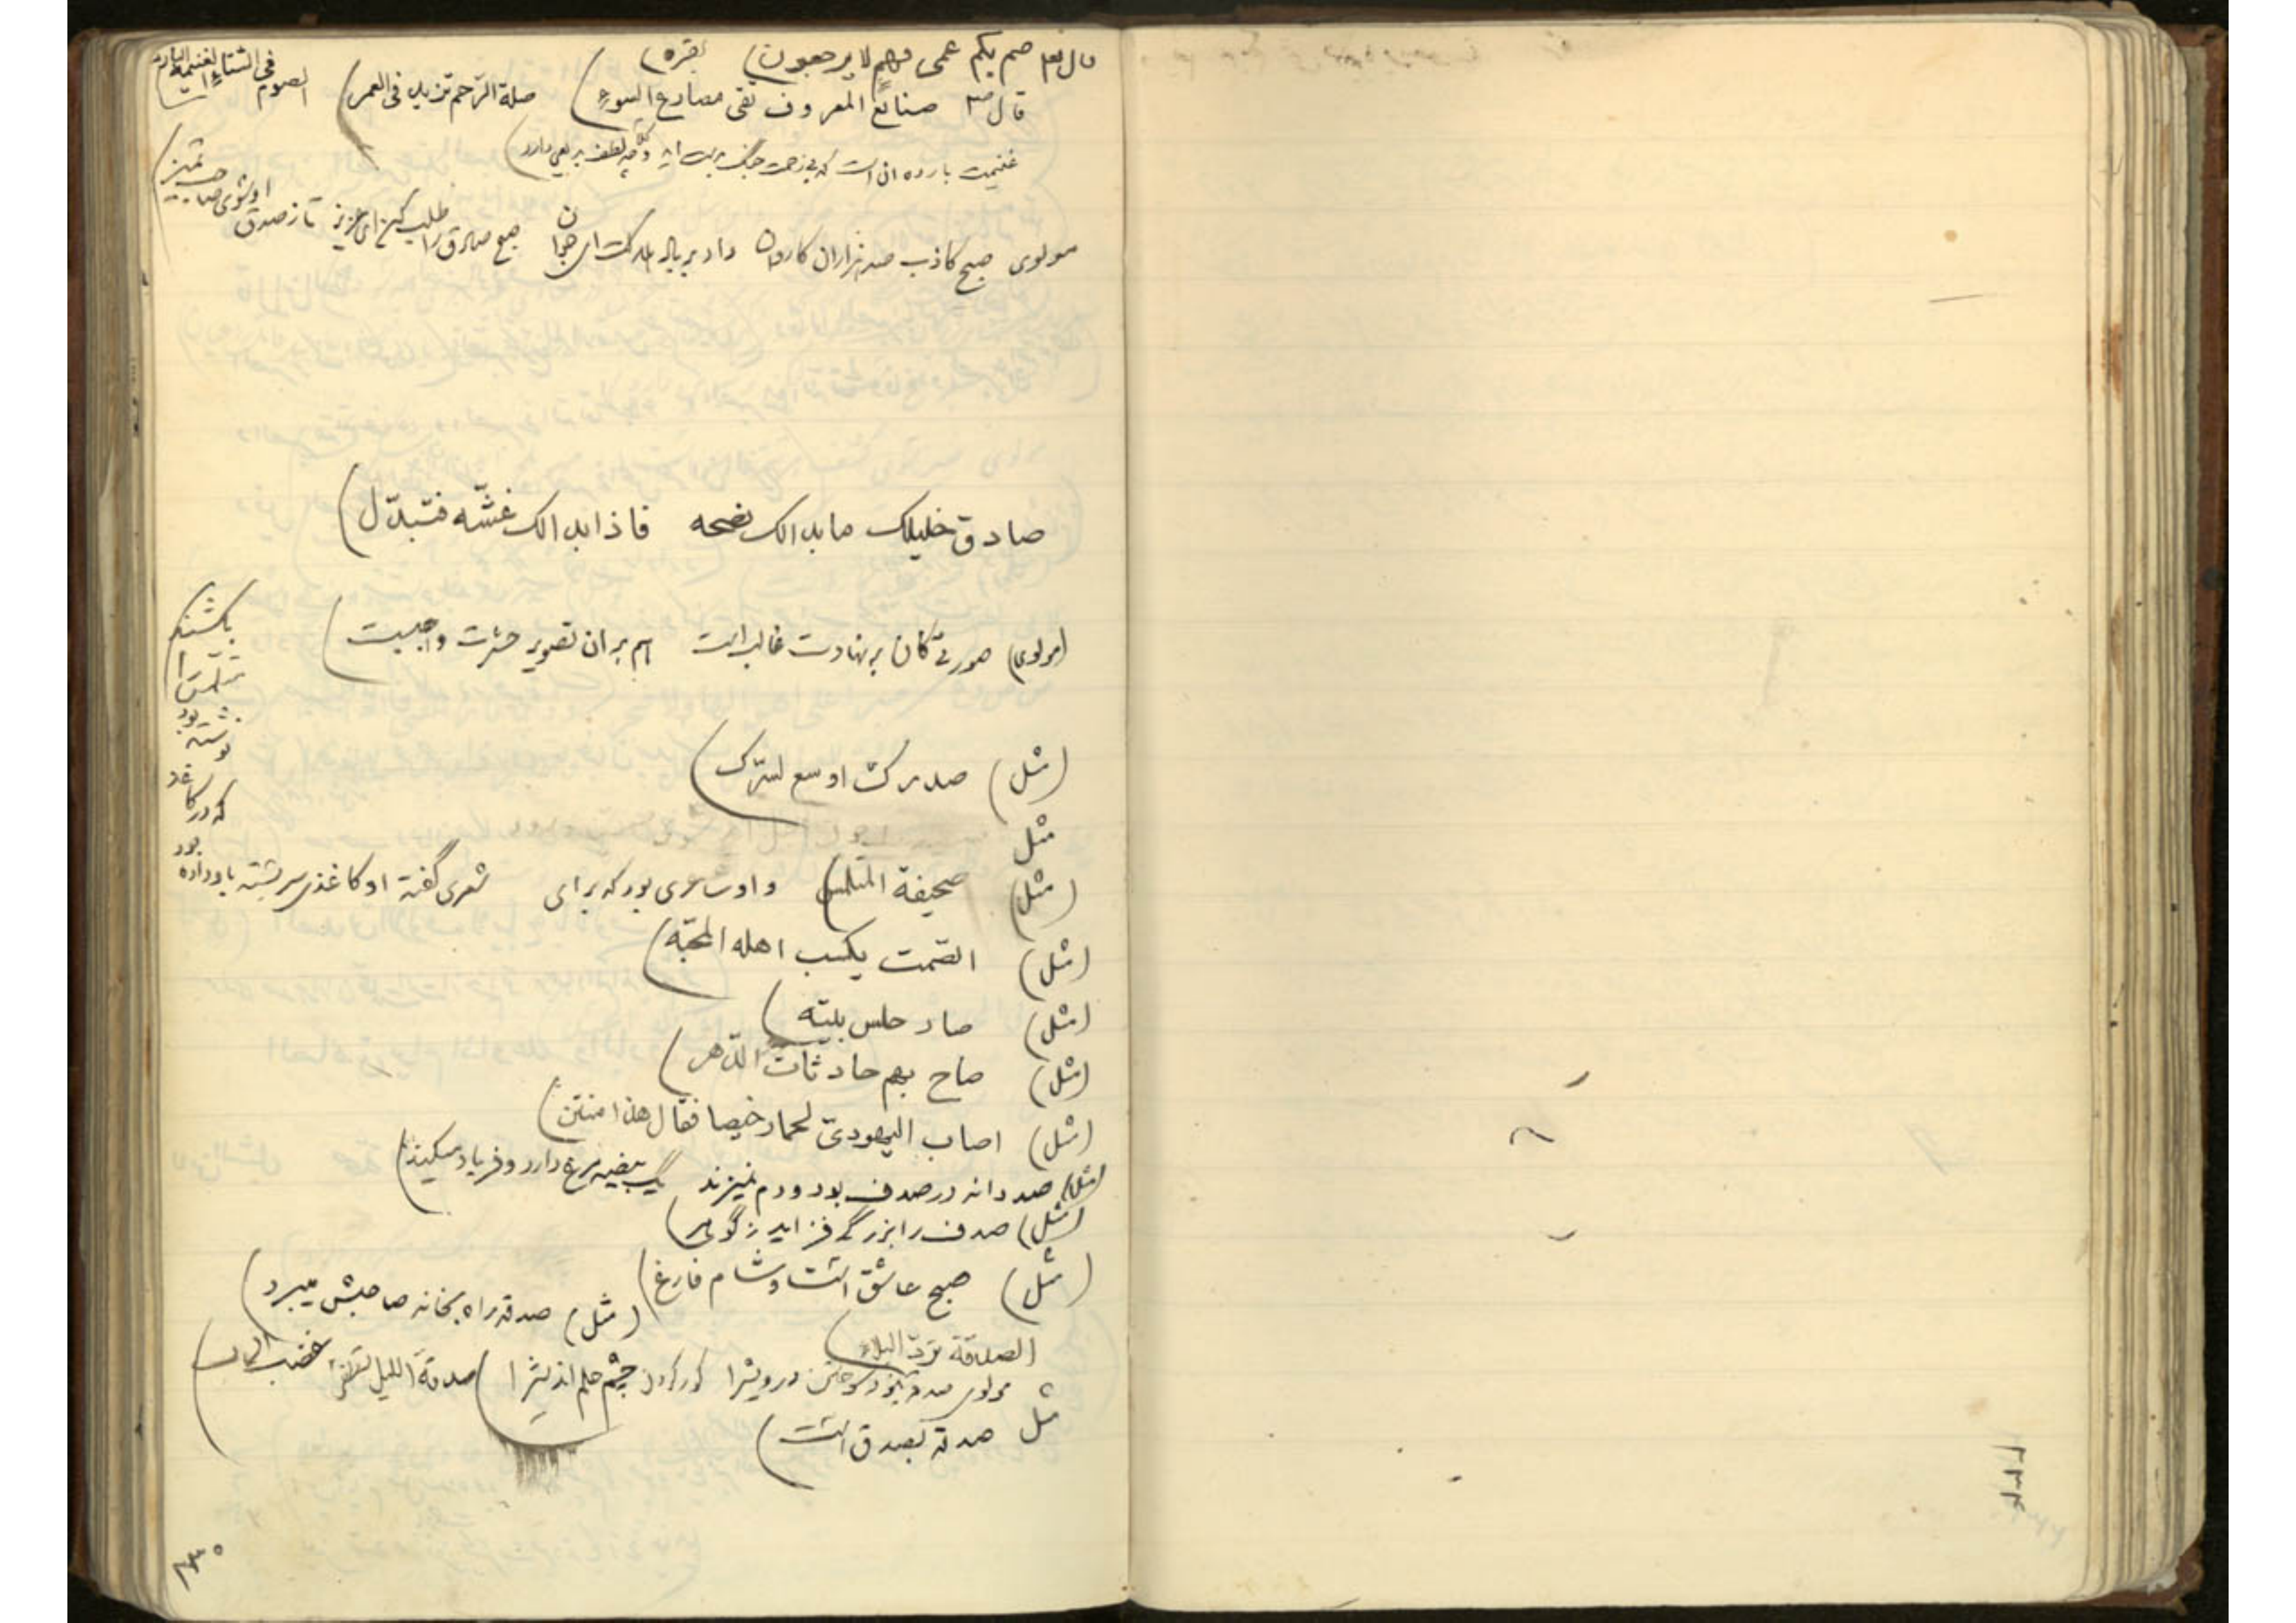 قال تع صم بکم عمی فهم لا یرجعون) بقره)
قال ص صنائع المعروف تقی مصارع السوء) صلة الرّحم تزید فی العمر) الصوم فی الشتاء الغنیمة الباردة
غنیمت بارده آن است که بی زحمت جنگ بدست آید
مولوی صبح کاذب صد هزاران کاروان داد بر باد هلاکت ای جوان صبح صادق را طلب کن ای عزیز تا ز صدق او شوی صاحب تمیز)
صادق خلیلک ما بدا لک نصحه فاذا بدا لک غشّه فتبدّل)
(مولوی) صورتی کان بر نهادت غالب است هم بر آن تصویر حشرت واجبست)
(مثل) صدرک اوسع لسرّک)
مثل
(مثل) صحیفة المتلمس) و او شاعری بود که برای شعری گفته او کاغذی سر بسته باو داده بود
که در کاغذ
نوشته بود
متلمس را
بکشند
(مثل) الصّمت یکسب اهله المحبّة)
(مثل) صار حلس بیته)
(مثل) صاح بهم حادثات الدّهر)
(مثل) اصاب الیهودیّ لحما رخیصا فقال هذا منتن)
(مثل) صد دانه در صدف بود و دم نمیزند یک بیضه مرغ دارد و فریاد میکند)
(مثل) صدف را بزرگی فزاید ز گوهر)
(مثل) صبح عاشق است و شام فارغ)
(مثل) صدقه راه بخانه صاحبش میبرد)
الصدقة تردّ البلاء)
مولوی صدقه نبود سوختن درویش را کور کردن چشم حلم اندیش را) صدقة اللیل تطفئ غضب الرب)
مثل صدقه بصدق است)
۲۳۰